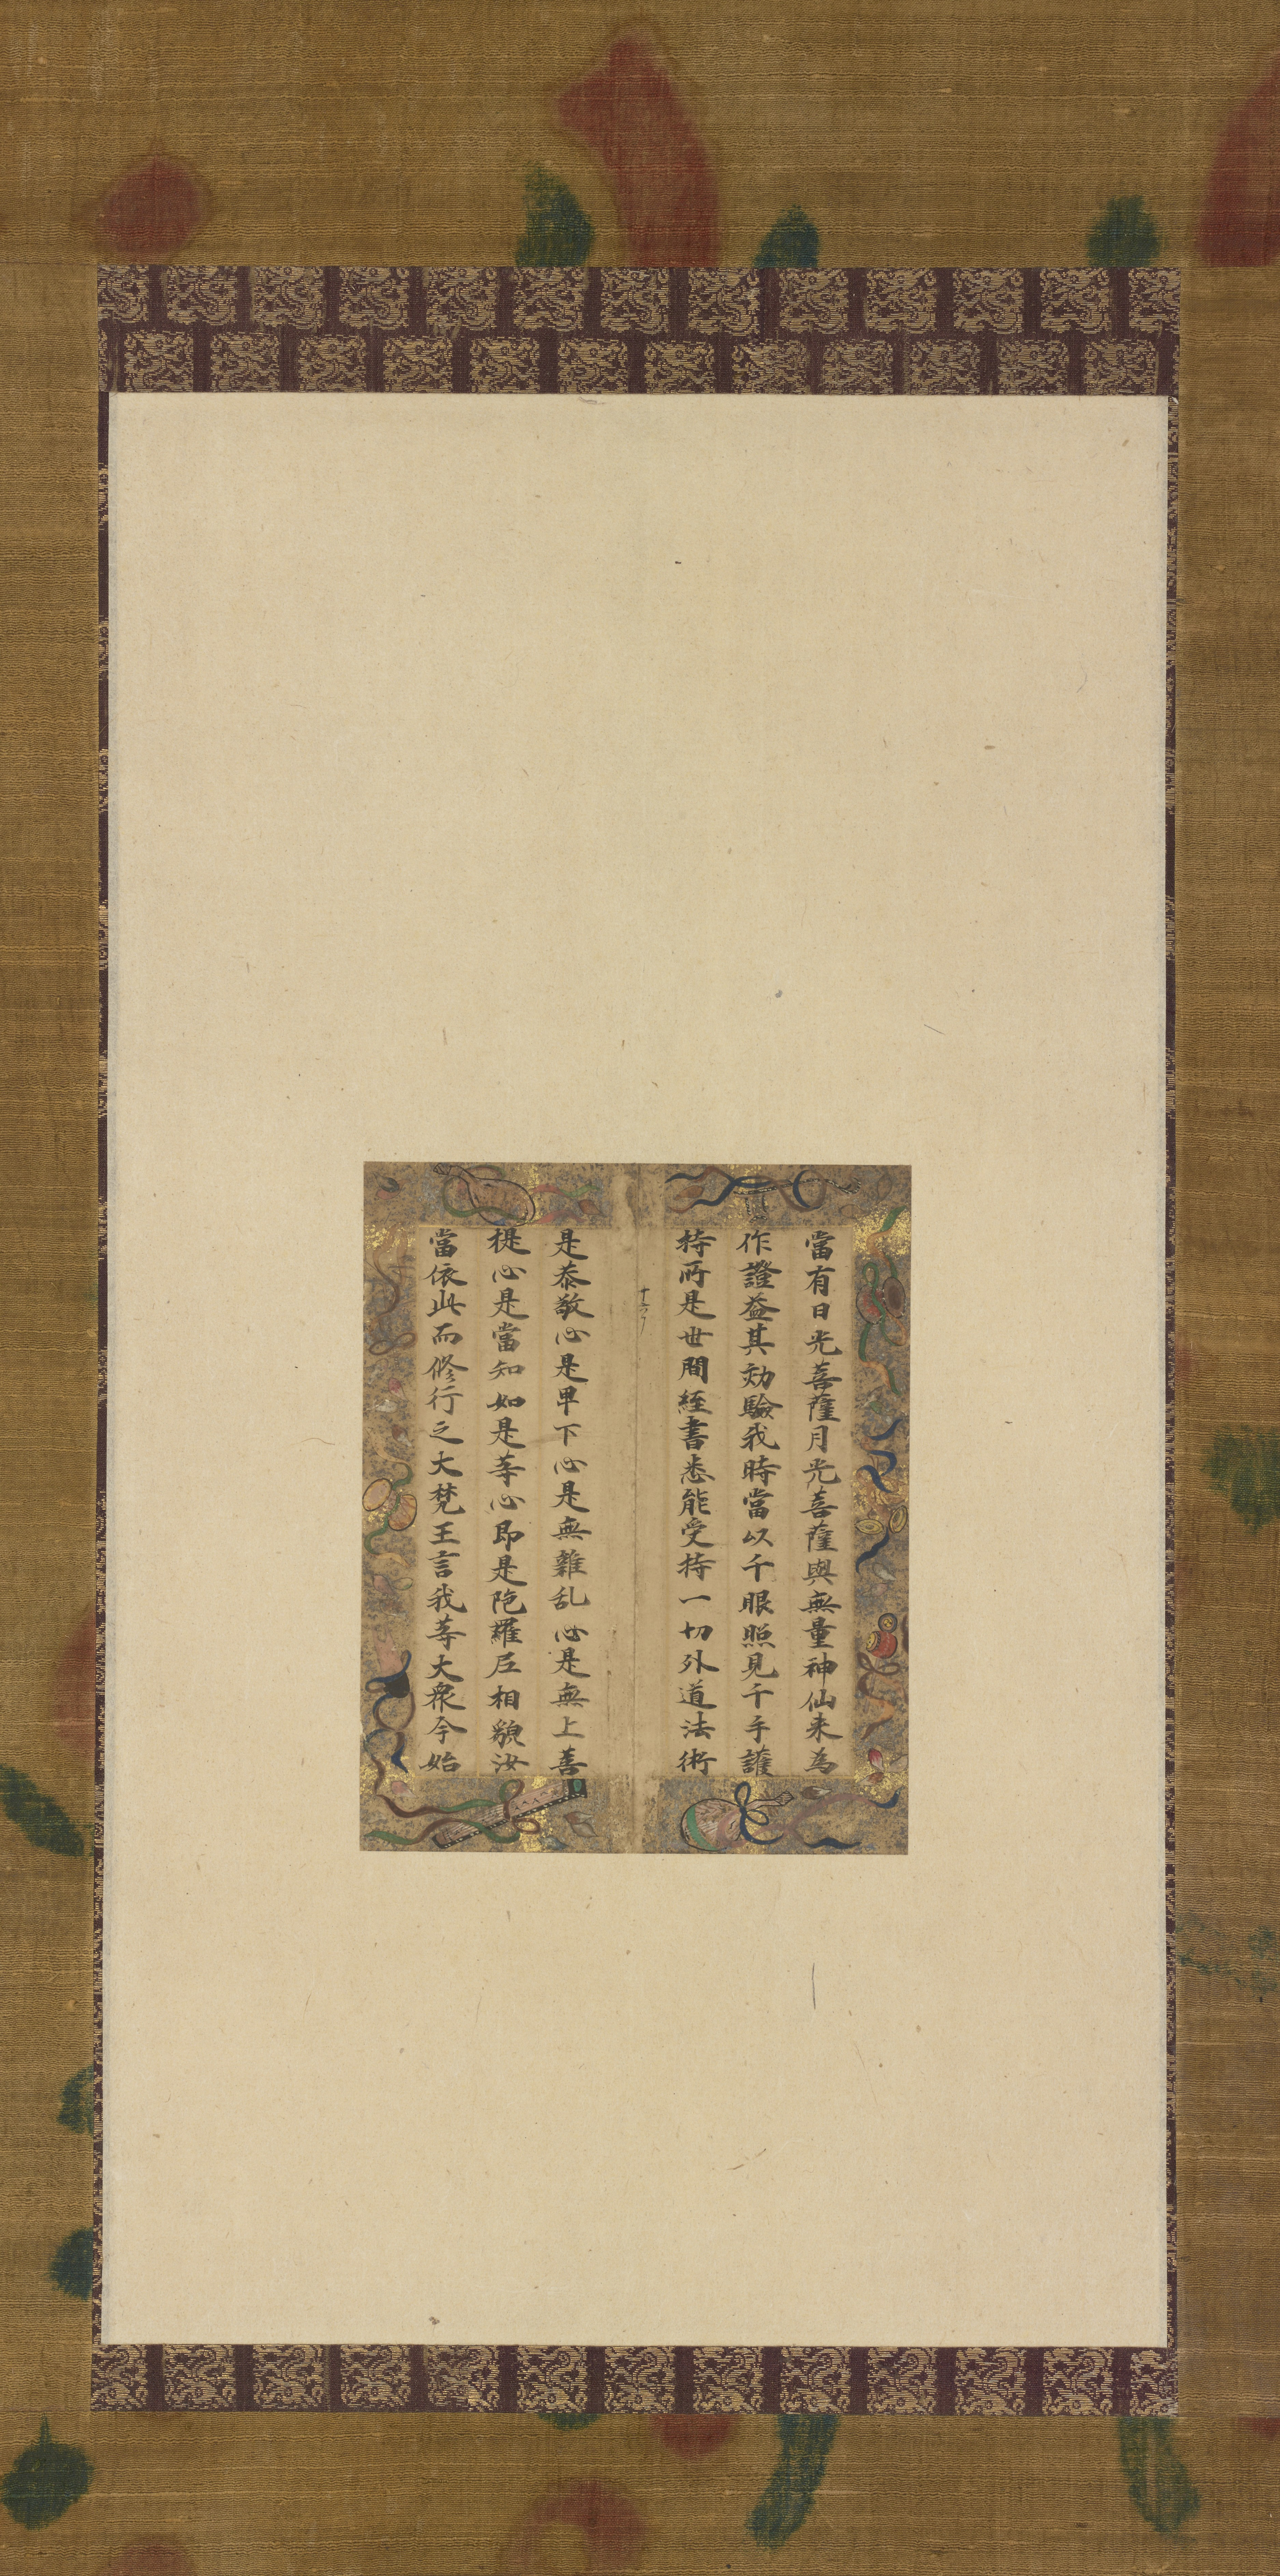 當有日光菩薩月光菩薩與無量神仙来為
作證益其効驗我時當以千眼照見千手護
持所是世間経書悉能受持一切外道法術
是恭敬心是卑下心是無雜乱心是無上菩
提心是當知如是等心即是陁羅尼相貌汝
當依此而修行之大梵王言我等大衆今始